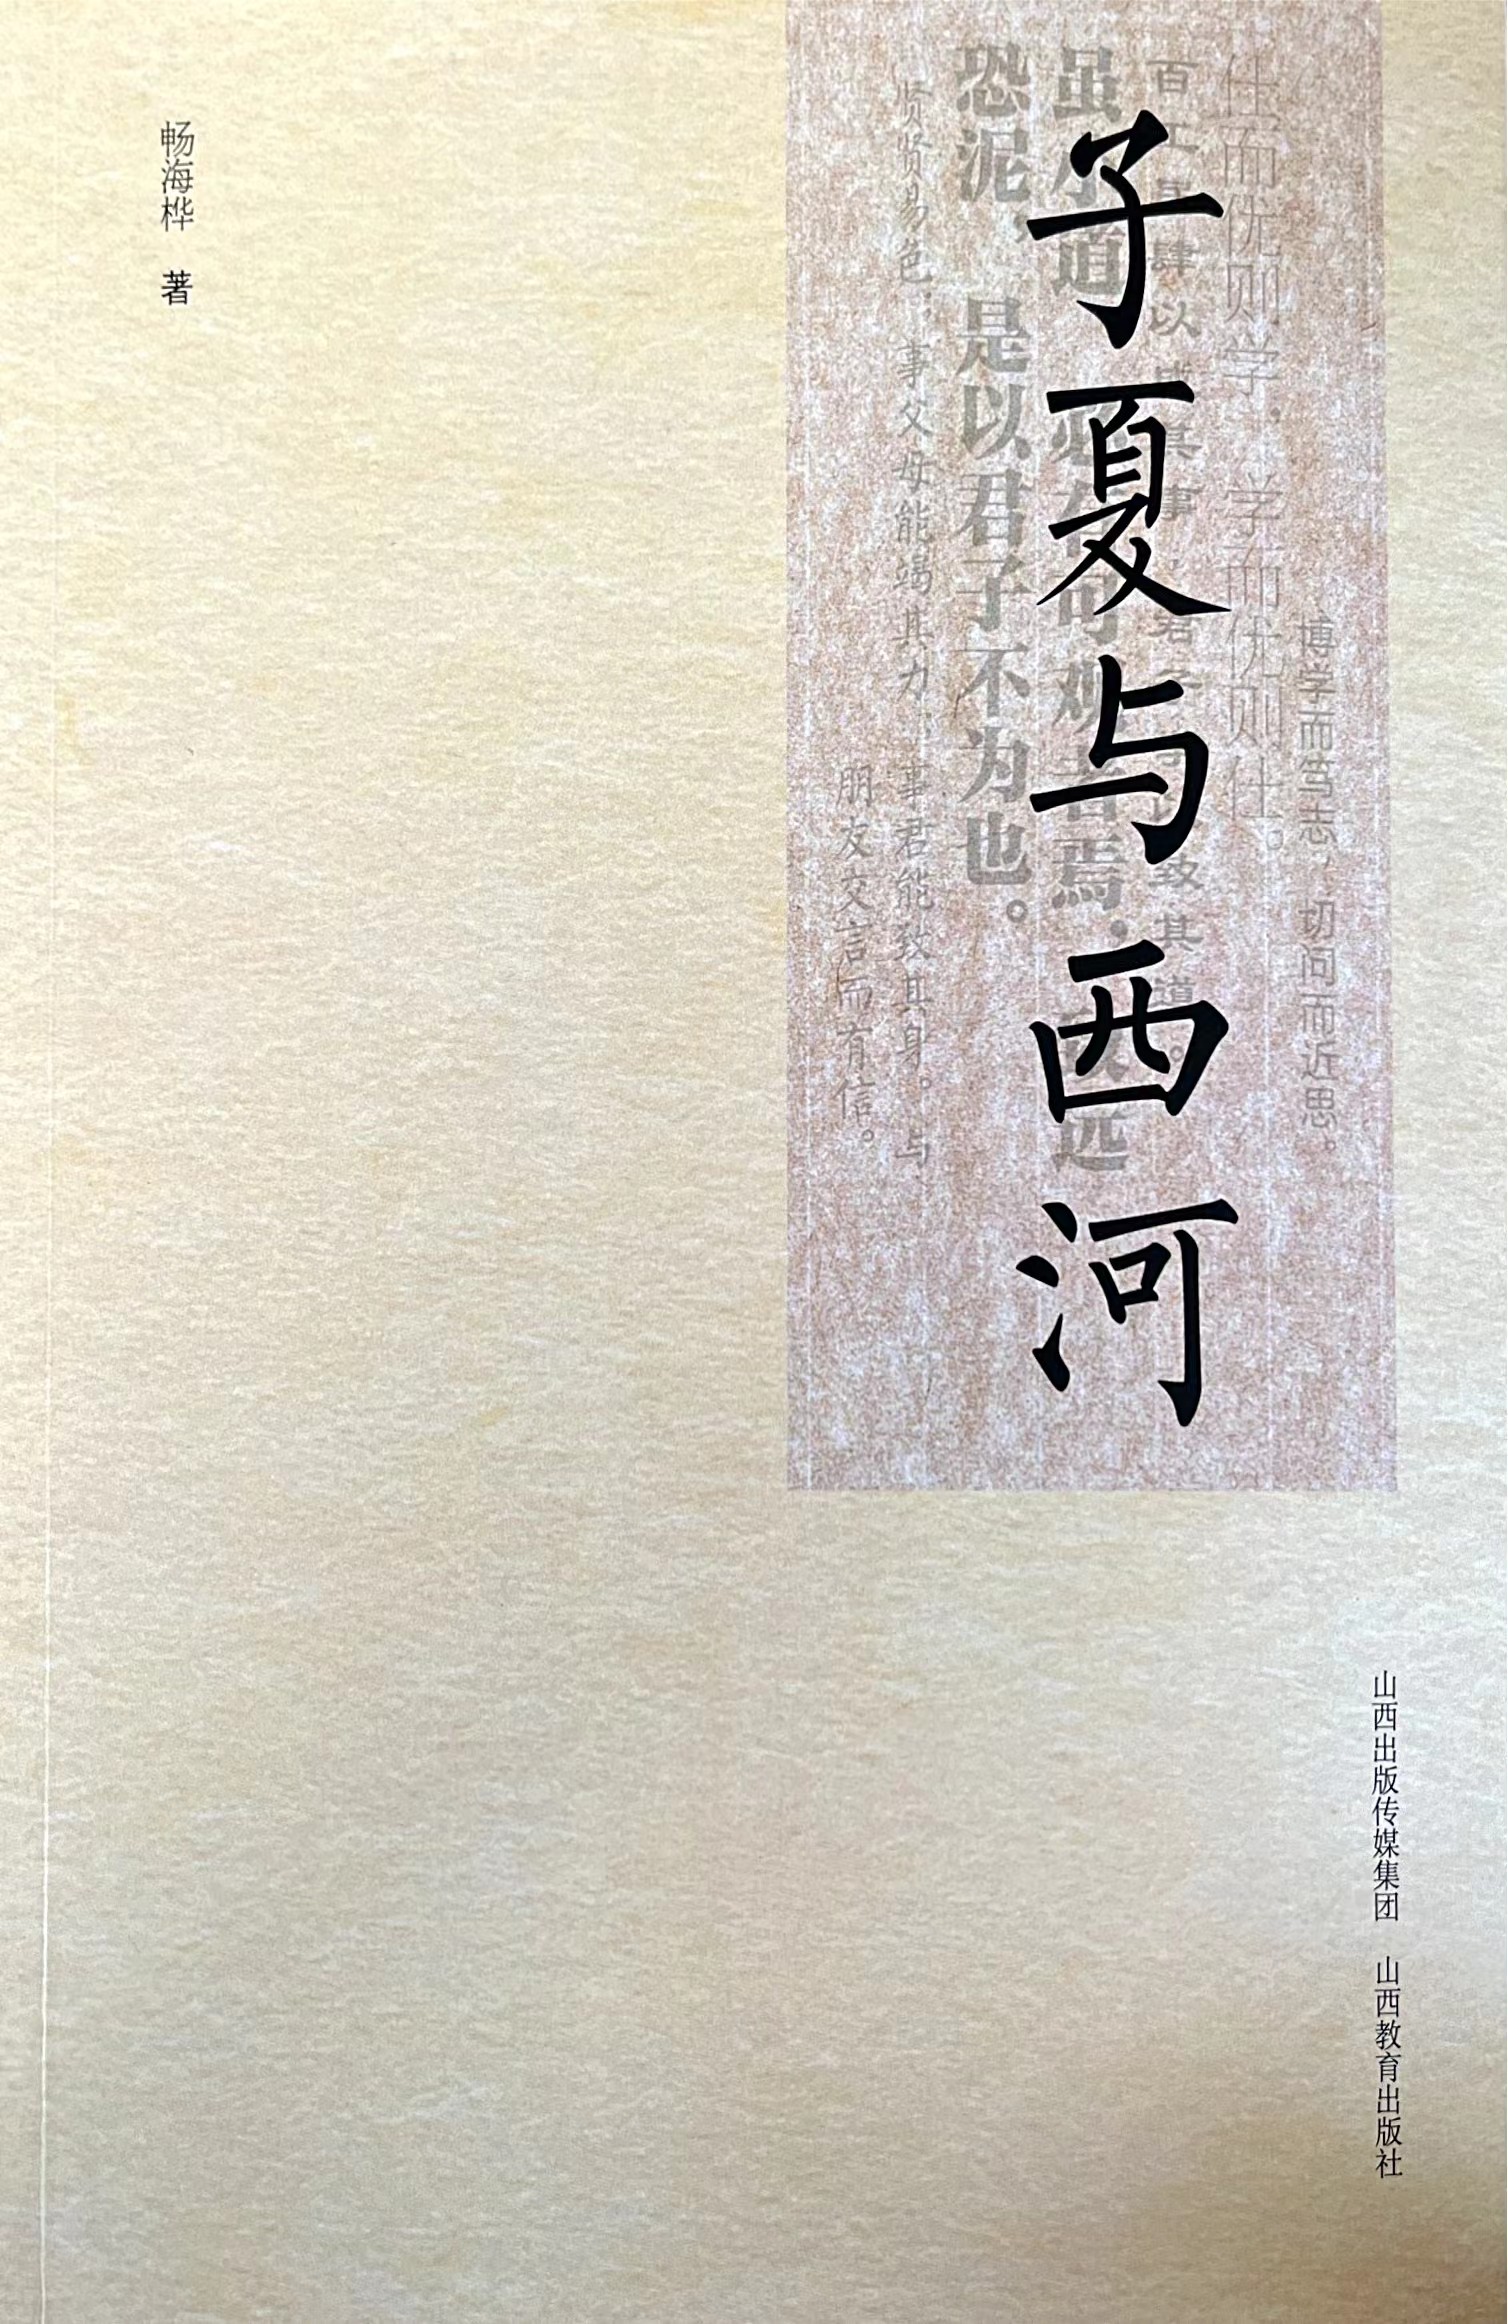 子夏与西河
博学而笃志，切问而近思。
仕而优则学，学而优则仕。
百工居肆以成其事，君子学以致其道
虽小道，必有可观者焉，致远
恐泥，是以君子不为也。
贤贤易色；事父母能竭其力，事君能致其身。与
朋友交言而有信。
畅海桦 著
山西出版传媒集团 山西教育出版社